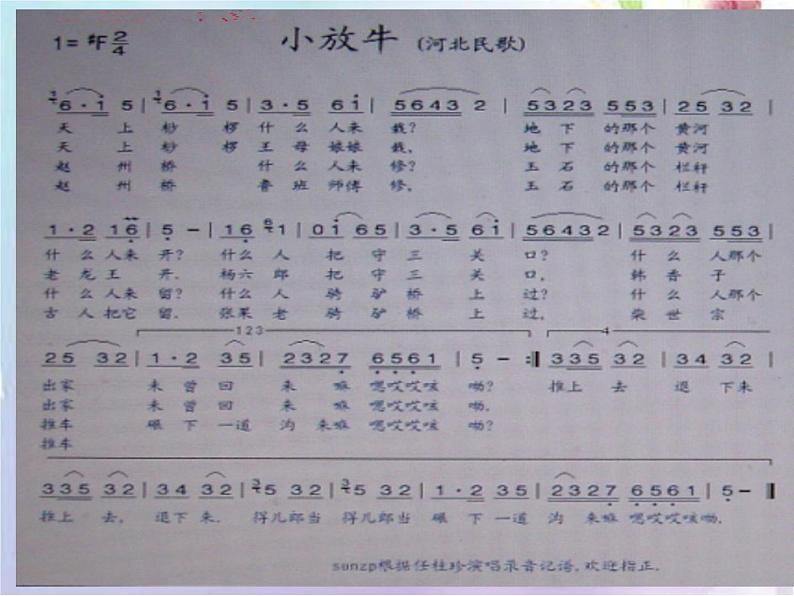 小放牛 (河北民歌)
1=♯F 2/4
6·i 5 | 6·i 5 | 3·5 6i | 5643 2 | 5323 553 | 25 32 |
天 上 桫 椤 什 么 人来 栽? 地 下 的那个 黄河
天 上 桫 椤 王 母 娘娘 栽, 地 下 的那个 黄河
赵 州 桥 什 么 人来 修? 玉 石 的那个 栏杆
赵 州 桥 鲁 班 师傅 修, 玉 石 的那个 栏杆
1·2 16 | 5 - | 16 1 | 0i 65 | 3·5 6i | 56432 | 5323 553 |
什 么 人来 开? 什么 人 把 守 三 关 口? 什 么 人那个
老 龙 王 开. 杨六 郎 把 守 三 关 口, 韩 香 子
什 么 人来 留? 什么 人 骑 驴 桥 上 过? 什 么 人那个
古 人 把它 留. 张果 老 骑 驴 桥 上 过, 柴 世 宗
123 4
25 32 | 1·2 35 | 2327 6561 | 5 - :‖ 335 32 | 34 32 |
出家 未 曾 回 来 嘛 嗯哎哎咳 呦? 推上 去 退 下来
出家 未 曾 回 来 嘛 嗯哎哎咳 呦.
推车 碾 下 一道 沟 来嘛 嗯哎哎咳 呦?
推车
335 32 | 34 32 | 5 332 | 5 332 | 1·2 35 | 2327 6561 | 5 - ‖
推上 去, 退下 来. 得儿郎当 得儿郎当 碾 下 一道 沟 来嘛 嗯哎哎咳呦.
sunzp根据任桂珍演唱录音记谱,欢迎指正.